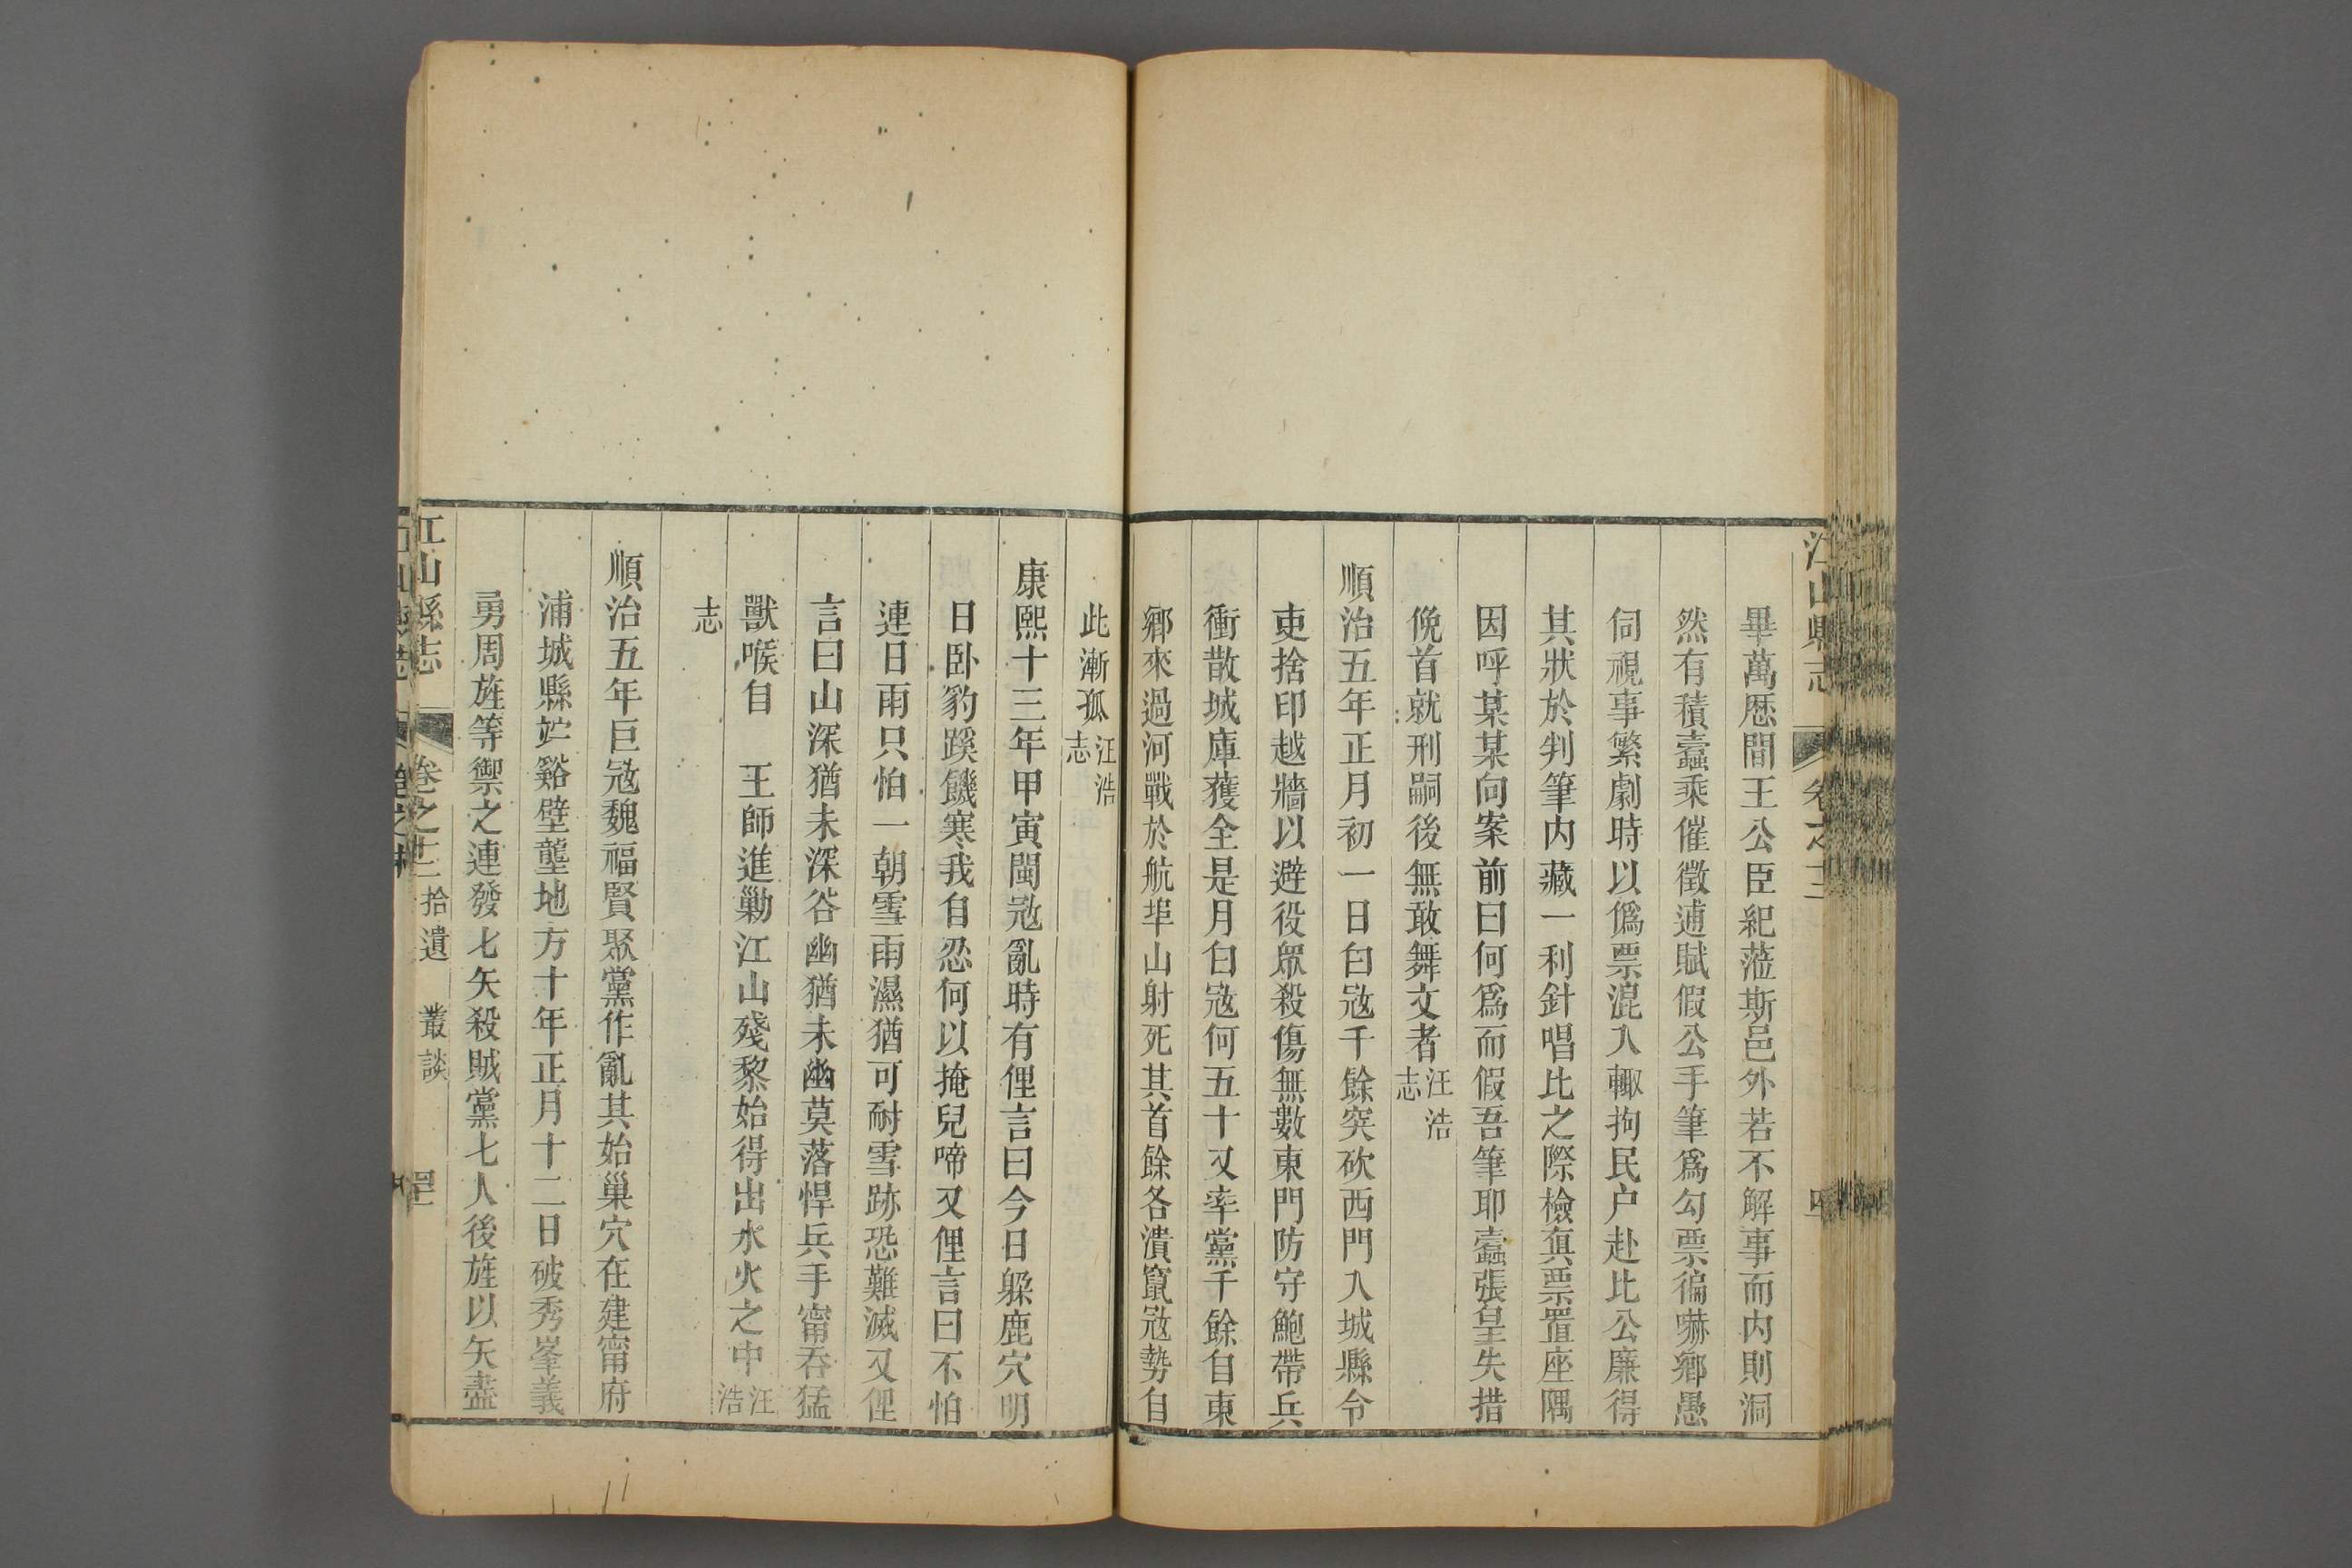 江山縣志
卷之十二
畢萬厯間王公臣紀蒞斯邑外若不解事而内則洞
然有積蠹乘催徵逋賦假公手筆爲勾票徧嚇鄉愚
伺視事繁劇時以僞票混入輙拘民户赴比公廉得
其狀於判筆内藏一利針唱比之際檢眞票置座隅
因呼某某向案前曰何爲而假吾筆耶蠹張皇失措
俛首就刑嗣後無敢舞文者汪浩
志
順治五年正月初一日白寇千餘突砍西門入城縣令
吏捨印越牆以避役眾殺傷無數東門防守鮑帶兵
衝散城庫獲全是月白寇何五十又率黨千餘自東
鄉來過河戰於航埠山射死其首餘各潰竄寇勢自
此漸孤汪浩
志
康熙十三年甲寅閩寇亂時有俚言曰今日躱鹿穴明
日卧豹蹊饑寒我自忍何以掩兒啼又俚言曰不怕
連日雨只怕一朝雪雨濕猶可耐雪跡恐難滅又俚
言曰山深猶未深谷幽猶未幽莫落悍兵手甯吞猛
獸喉自 王師進勦江山殘黎始得出水火之中汪
浩
志
順治五年巨寇魏福賢聚黨作亂其始巢穴在建甯府
浦城縣𥩟谿壁壟地方十年正月十二日破秀峯義
勇周旌等禦之連發七矢殺賊黨七人後旌以矢盡
江山縣志
卷之十二 拾遺 叢談